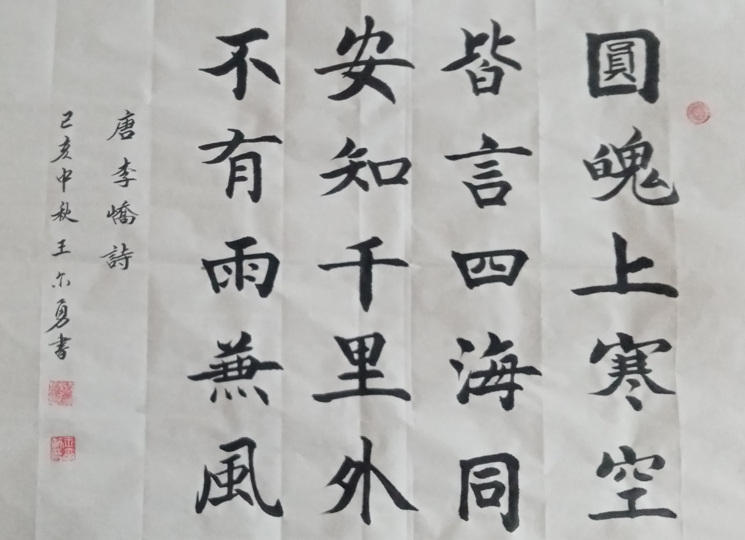 圓魄上寒空
皆言四海同
安知千里外
不有雨兼風
唐李嶠詩
己亥中秋王尔勇書